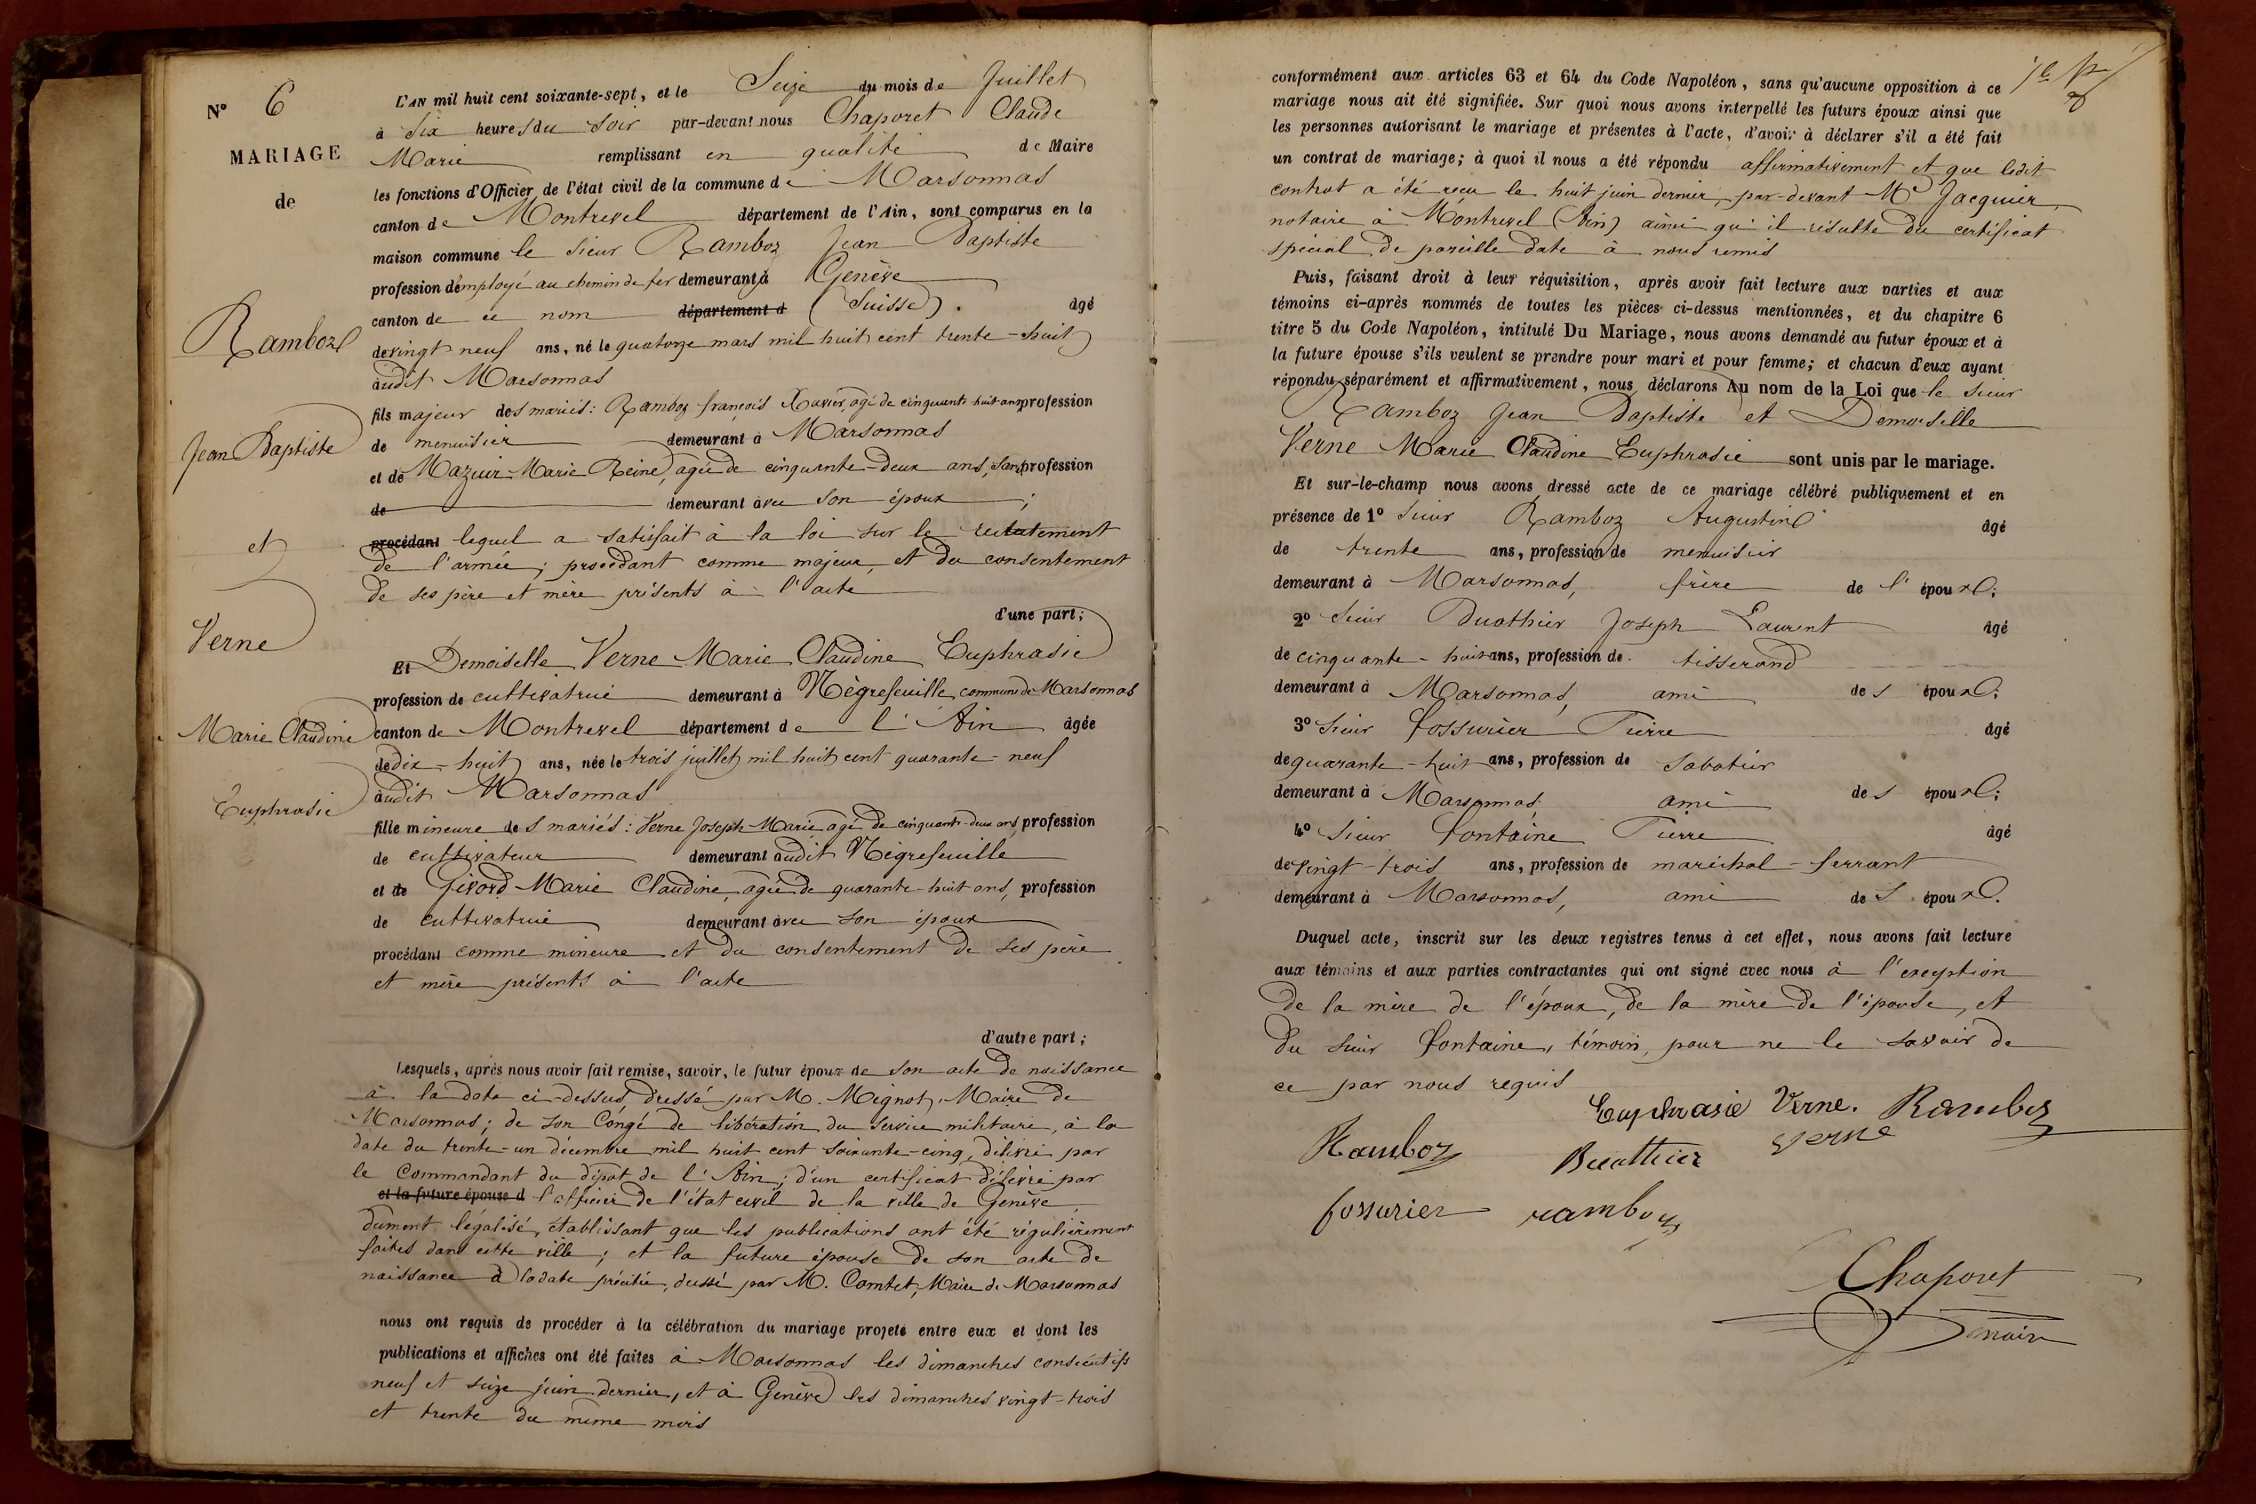 N° 6
MARIAGE
de
Ramboz
Jean Baptiste
et
Verne
Marie Claudine
Euphrasie
L'AN mil huit cent soixante-sept, et le Seize du mois de Juillet
à Six heures du soir par-devant nous Chaporet Claude
Marie remplissant en qualité de Maire
les fonctions d'Officier de l'état civil de la commune de Marsonnas
canton de Montrevel département de l'Ain, sont comparus en la
maison commune le sieur Ramboz Jean Baptiste
profession d'employé au chemin de fer demeurant à Genève
canton de ce nom département d (Suisse). âgé
de vingt neuf ans, né le quatorze mars mil huit cent trente-huit
audit Marsonnas
fils majeur des mariés: Ramboz françois Xavier, agé de cinquante huit ans profession
de menuisier demeurant à Marsonnas
et de Mazuir Marie Reine, agée de cinquante-deux ans, sans profession
de demeurant avec son époux ;
procédant lequel a satisfait à la loi sur le recrutement
de l'armée; procédant comme majeur, et du consentement
de ses père et mère présents à l'acte
d'une part;
Et Demoiselle Verne Marie Claudine Euphrasie
profession de cultivatrice demeurant à Nègrefeuille, commune de Marsonnas
canton de Montrevel département de l'Ain âgée
de dix-huit ans, née le trois juillet mil huit cent quarante-neuf
audit Marsonnas
fille mineure des mariés: Verne Joseph-Marie, agé de cinquante-deux ans, profession
de cultivateur demeurant audit Nègrefeuille
et de Givord Marie Claudine, agée de quarante-huit ans, profession
de cultivatrice demeurant avec son époux
procédant comme mineure et du consentement de ses père
et mère présents à l'acte
d'autre part;
Lesquels, après nous avoir fait remise, savoir, le futur époux de son acte de naissance
à la date ci-dessus, dressé par M. Mignot, Maire de
Marsonnas; de son Congé de libération du service militaire, à la
date du trente-un décembre mil huit cent soixante-cinq, délivré par
le Commandant du dépôt de l'Ain; d'un certificat délivré par
et la future épouse d l'officier de l'état civil de la ville de Genève
dument légalisé, établissant que les publications ont été régulièrement
faites dans cette ville; et la future épouse de son acte de
naissance à la date précitée, dressé par M. Comtet, Maire de Marsonnas
nous ont requis de procéder à la célébration du mariage projeté entre eux et dont les
publications et affiches ont été faites à Marsonnas les dimanches consécutifs
neuf et seize juin dernier, et à Genève les dimanches vingt-trois
et trente du même mois
conformément aux articles 63 et 64 du Code Napoléon, sans qu'aucune opposition à ce
mariage nous ait été signifiée. Sur quoi nous avons interpellé les futurs époux ainsi que
les personnes autorisant le mariage et présentes à l'acte, d'avoir à déclarer s'il a été fait
un contrat de mariage; à quoi il nous a été répondu affirmativement et que ledit
contrat a été reçu le huit juin dernier, par-devant Me Jacquier,
notaire à Montrevel (Ain) ainsi qu'il résulte du certificat
spécial de pareille date à nous remis
Puis, faisant droit à leur réquisition, après avoir fait lecture aux parties et aux
témoins ci-après nommés de toutes les pièces ci-dessus mentionnées, et du chapitre 6
titre 5 du Code Napoléon, intitulé Du Mariage, nous avons demandé au futur époux et à
la future épouse s'ils veulent se prendre pour mari et pour femme; et chacun d'eux ayant
répondu séparément et affirmativement, nous déclarons Au nom de la Loi que le sieur
Ramboz Jean Baptiste et Demoiselle
Verne Marie Claudine Euphrasie sont unis par le mariage.
Et sur-le-champ nous avons dressé acte de ce mariage célébré publiquement et en
présence de 1° sieur Ramboz Augustin âgé
de trente ans, profession de menuisier
demeurant à Marsonnas, frère de l'époux;
2° sieur Buathier Joseph Laurent âgé
de cinquante-huit ans, profession de tisserand
demeurant à Marsonnas, ami des époux;
3° sieur fossurier Pierre âgé
de quarante-huit ans, profession de sabotier
demeurant à Marsonnas, ami des époux;
4° sieur fontaine Pierre âgé
de vingt-trois ans, profession de maréchal-ferrant
demeurant à Marsonnas, ami des époux.
Duquel acte, inscrit sur les deux registres tenus à cet effet, nous avons fait lecture
aux témoins et aux parties contractantes qui ont signé avec nous à l'exception
de la mère de l'époux, de la mère de l'épouse, et
du sieur fontaine, témoin, pour ne le savoir de
ce par nous requis
Euphrasie Verne. Ramboz
Ramboz Buathier Verne
fossurier ramboz
Chaporet
maire